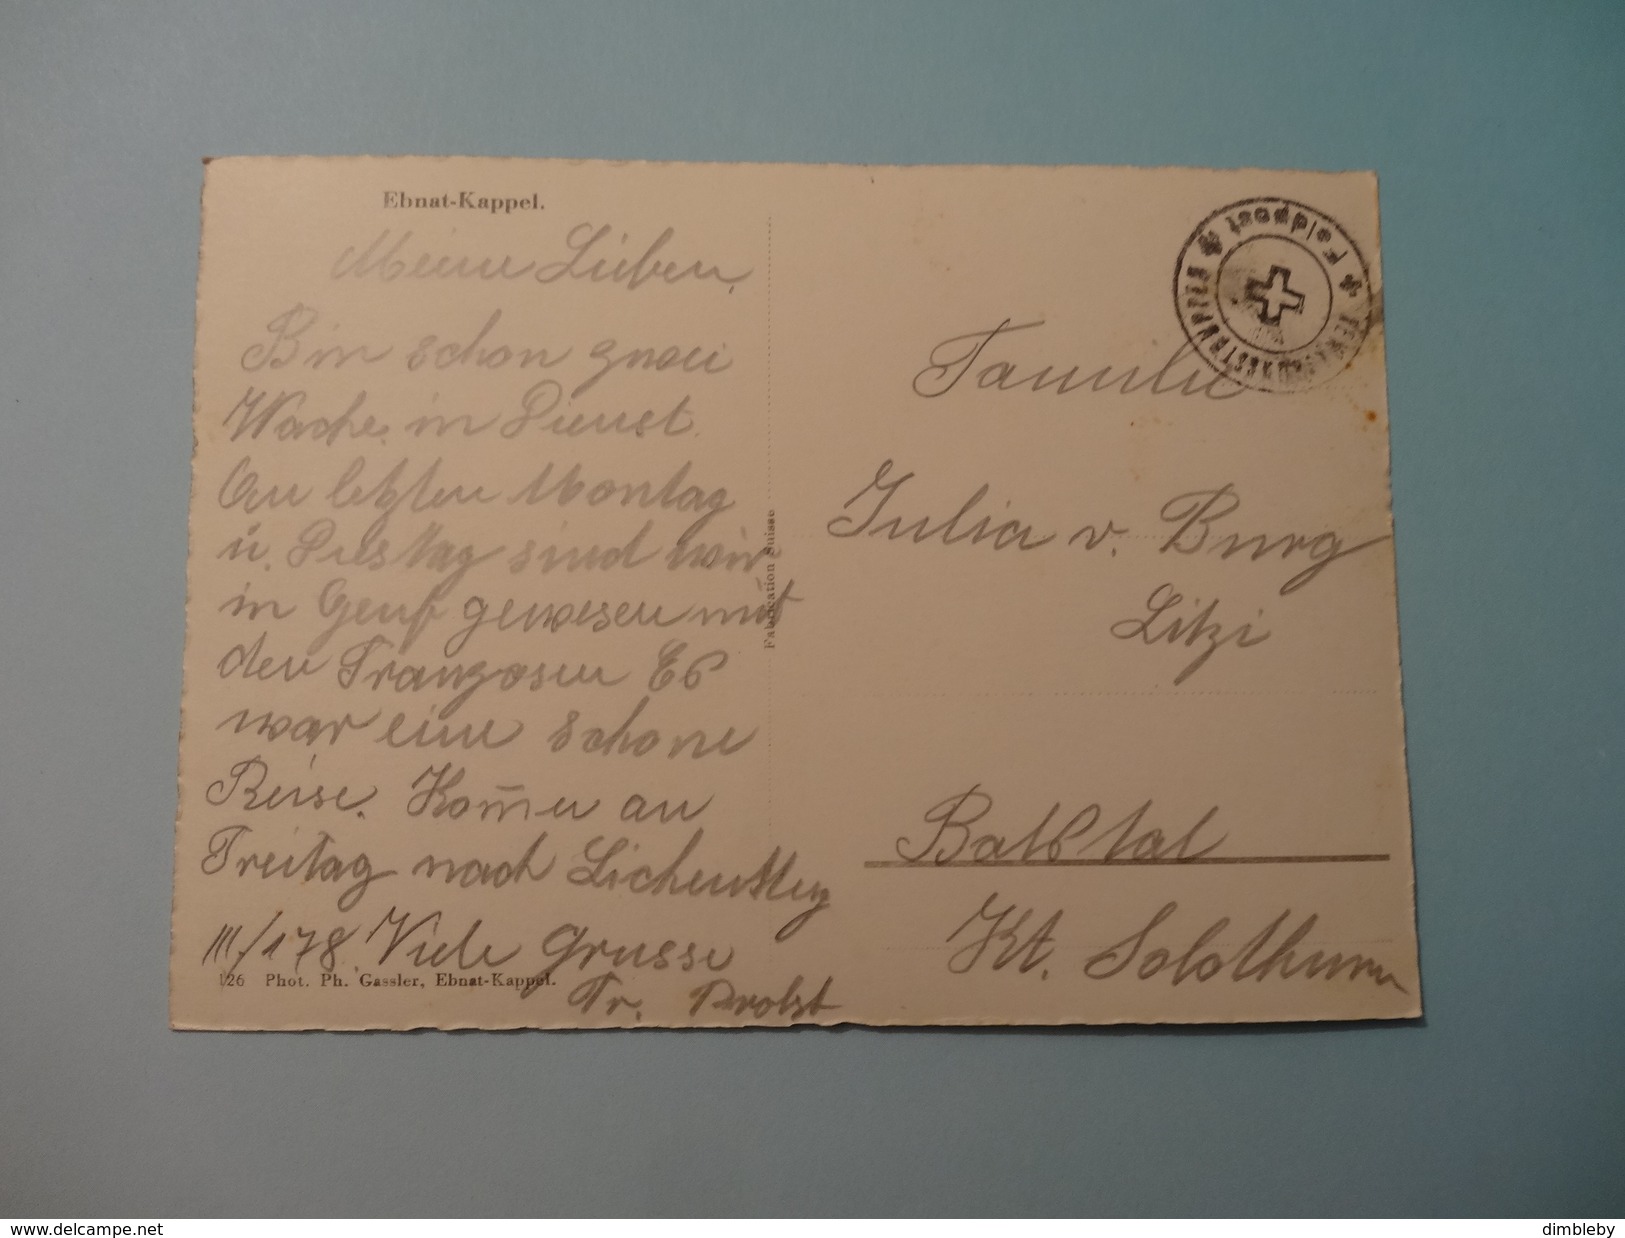 Ebnat-Kappel.
Meine Lieben,
Bin schon zwei
Woche in Dienst.
An letzten Montag
u. Dienstag sind wir
in Genf gewesen mit
den Franzosen Es
war eine schöne
Reise. Kom̄en an
Freitag nach Lichensteg
III/178. Viele Grusse
Fr. Probst
126 Phot. Ph. Gassler, Ebnat-Kappel.
Fabrication Suisse
Feldpost
Familie
Julia v. Burg
Litzi
Balsthal
Kt. Solothurn
www.delcampe.net
dimbleby